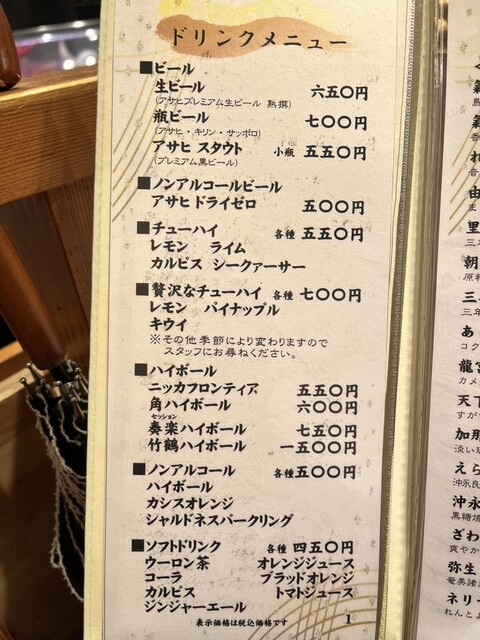 ドリンクメニュー
■ビール
生ビール 六五〇円
(アサヒプレミアム生ビール 熟撰)
瓶ビール 七〇〇円
(アサヒ・キリン・サッポロ)
アサヒ スタウト 小瓶 五五〇円
(プレミアム黒ビール)
■ノンアルコールビール
アサヒドライゼロ 五〇〇円
■チューハイ 各種 五五〇円
レモン ライム
カルピス シークァーサー
■贅沢なチューハイ 各種 七〇〇円
レモン パイナップル
キウイ
※その他季節により変わりますので
スタッフにお尋ねください。
■ハイボール
ニッカフロンティア 五五〇円
角ハイボール 六〇〇円
セッション
奏楽ハイボール 七五〇円
竹鶴ハイボール 一五〇〇円
■ノンアルコール 各種 五〇〇円
ハイボール
カシスオレンジ
シャルドネスパークリング
■ソフトドリンク 各種 四五〇円
ウーロン茶 オレンジジュース
コーラ ブラッドオレンジ
カルピス トマトジュース
ジンジャーエール
表示価格は税込価格です
1
里
三年
朝
原料
三
三年
あ
コク
龍宮
カメ
天下
すが
加那
淡い
えら
沖永良
沖永
黒糖焼
ざわ
爽やか
弥生
奄美諸
ネリー
れんと